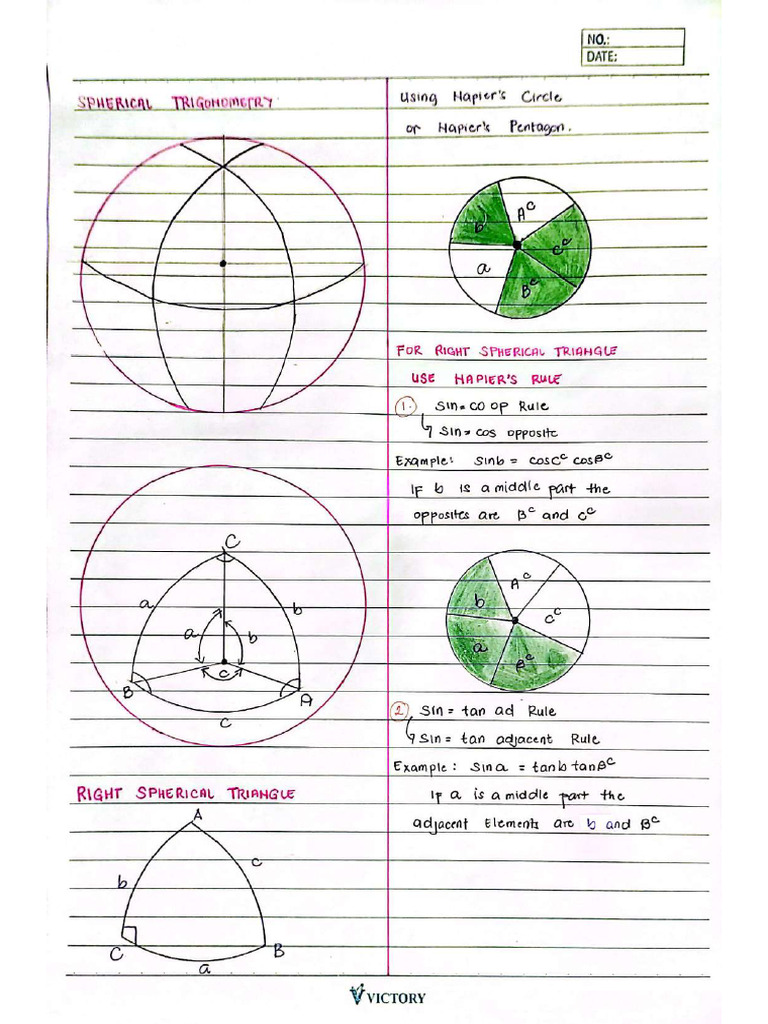 NO.:
DATE:
SPHERICAL TRIGONOMETRY
C
a
b
a
b
c
B
A
c
RIGHT SPHERICAL TRIANGLE
A
b
c
C
B
a
Using Napier's Circle
or Napier's Pentagon.
A^c
b
C^c
a
B^c
FOR RIGHT SPHERICAL TRIANGLE
USE NAPIER'S RULE
1. Sin = CO OP Rule
Sin = cos opposite
Example: sinb = cosC^c cosB^c
IF b is a middle part the
opposites are B^c and C^c
A^c
b
C^c
a
B^c
2. Sin = tan ad Rule
Sin = tan adjacent Rule
Example: Sina = tanb tanB^c
IF a is a middle part the
adjacent Elements are b and B^c
VICTORY